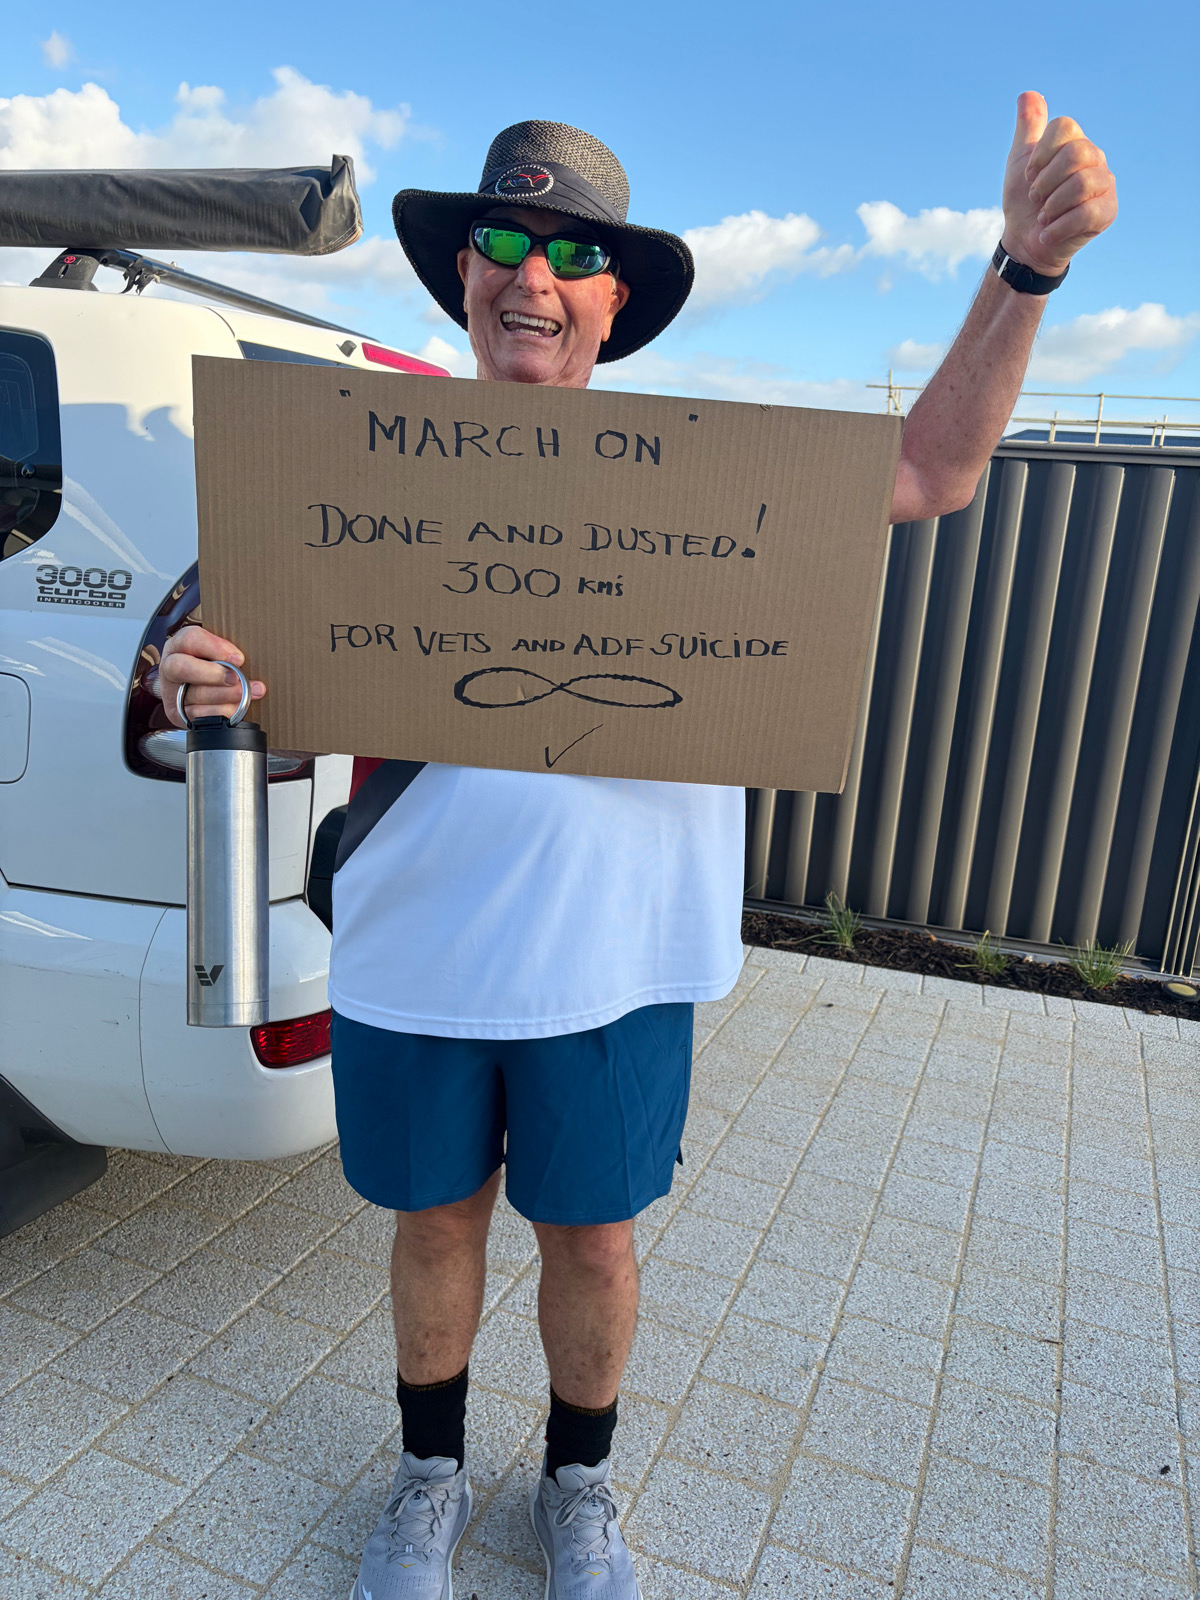 "MARCH ON"
DONE AND DUSTED!
300 KMS
FOR VETS AND ADF SUICIDE
3000
turbo
INTERCOOLER